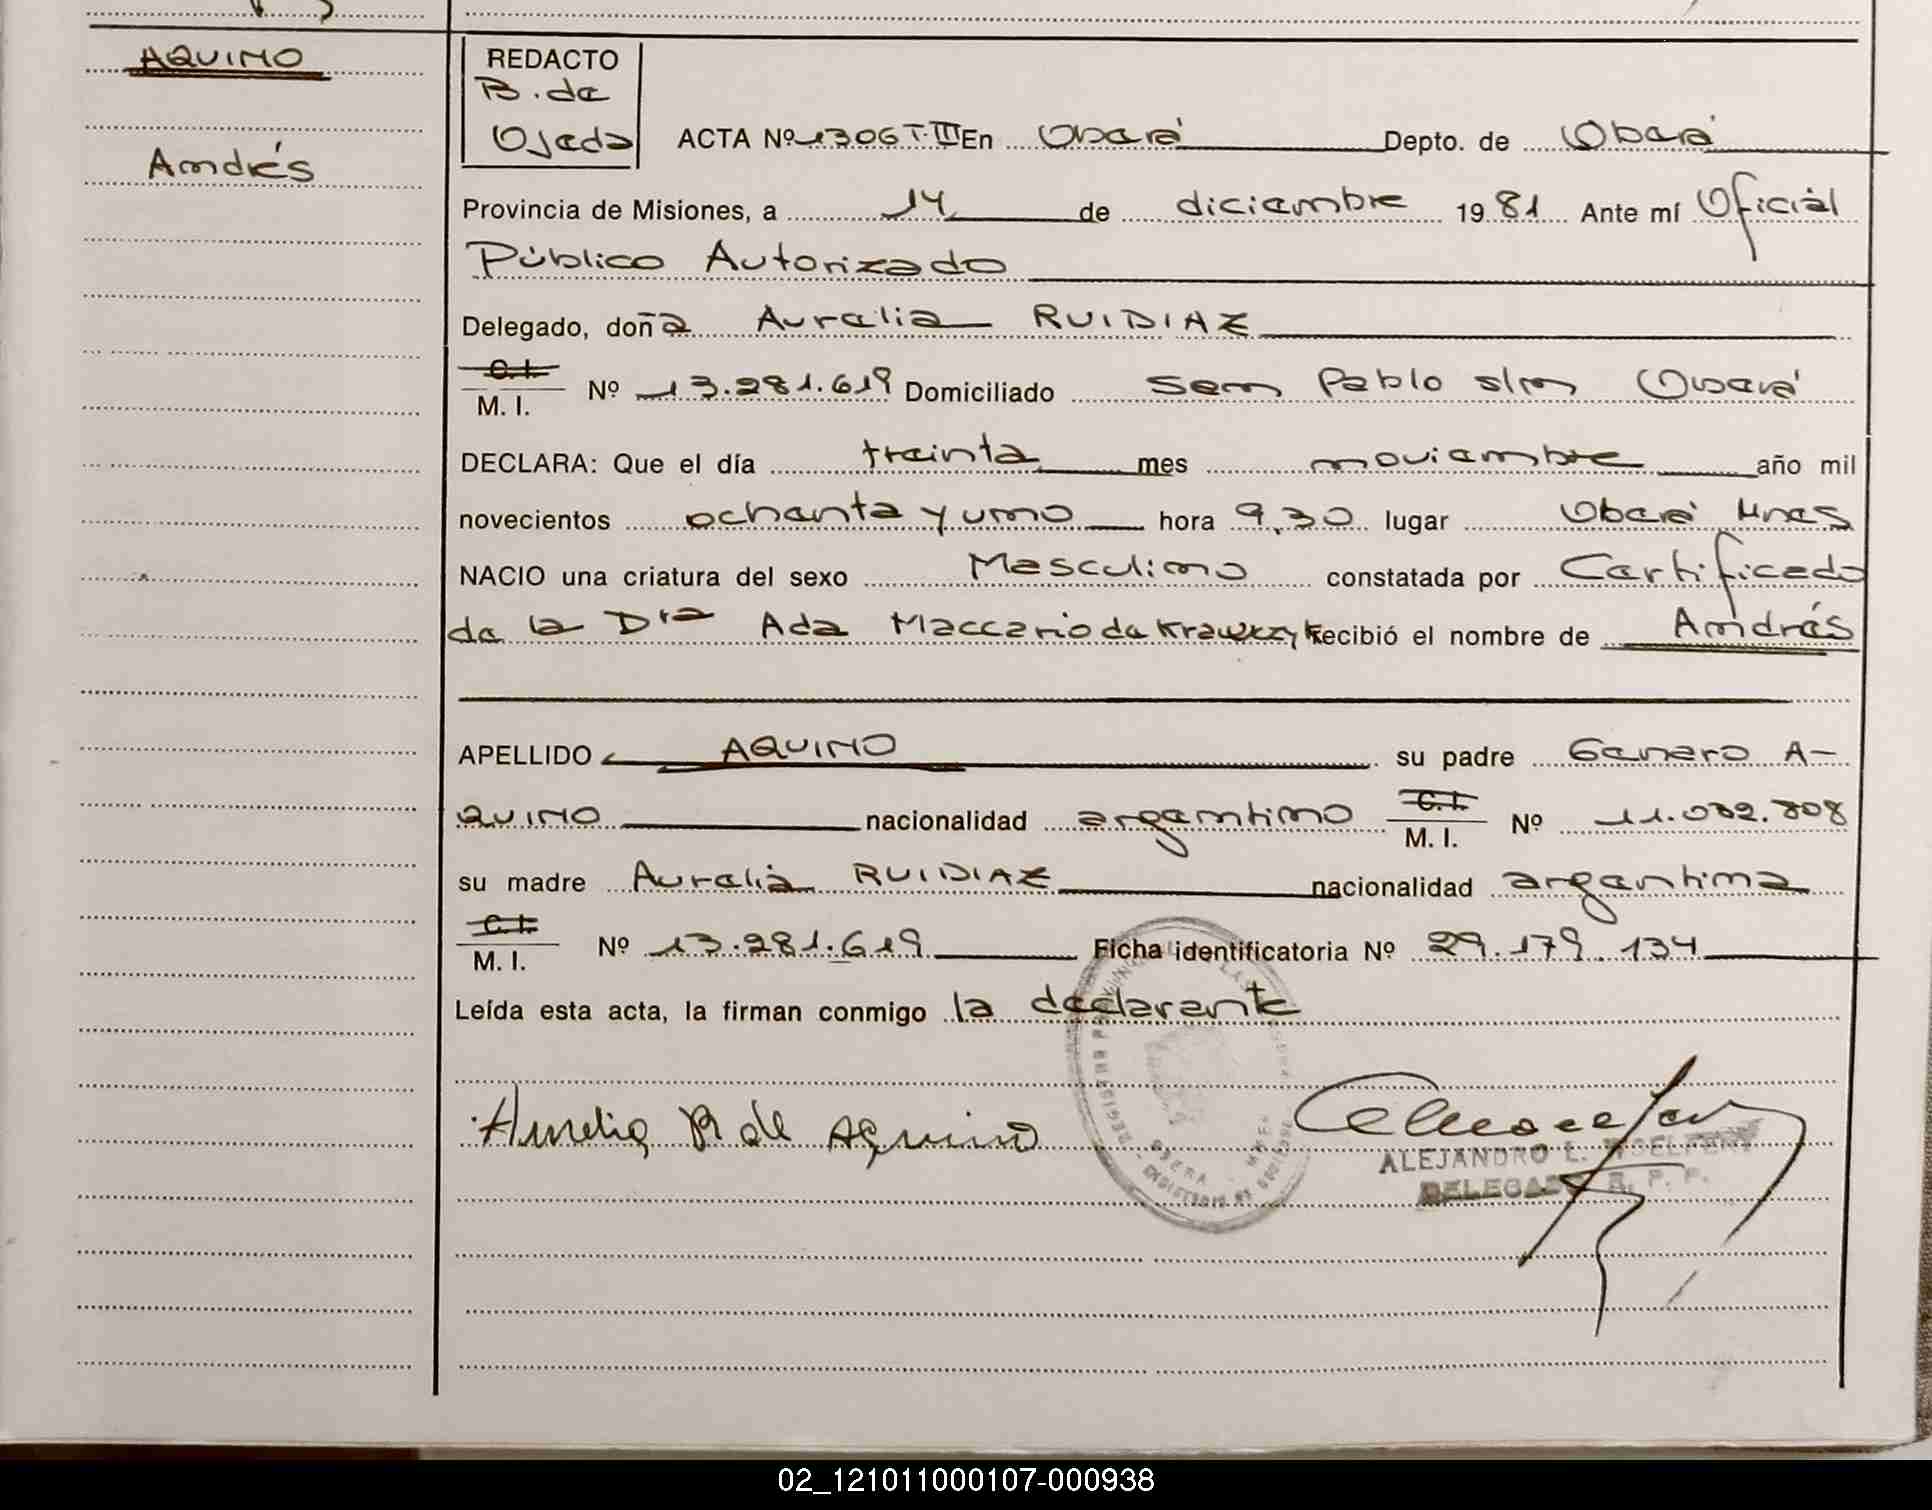 AQUINO
Andrés
REDACTO
B. de
Ojeda
ACTA Nº 1306 T·III En Oberá Depto. de Oberá
Provincia de Misiones, a 14 de diciembre 1981 Ante mí Oficial
Público Autorizado
Delegado, doña Aurelia RUIDIAZ
C. I.
M. I. Nº 13.281.619 Domiciliado San Pablo s/n Oberá
DECLARA: Que el día treinta mes noviembre año mil
novecientos ochenta y uno hora 9,30 lugar Oberá Mnes
NACIO una criatura del sexo Masculino constatada por Certificado
de la Dra Ada Maccario de Krawczyk Recibió el nombre de Andrés
APELLIDO AQUINO su padre Genero A-
QUINO nacionalidad argentino C. I.
M. I. Nº 11.082.808
su madre Aurelia RUIDIAZ nacionalidad argentina
C. I.
M. I. Nº 13.281.619 Ficha identificatoria Nº 29.179.134
Leída esta acta, la firman conmigo la declarante
Aurelia R de Aquino
ALEJANDRO L.
DELEGADO R. P. P.
02_121011000107-000938